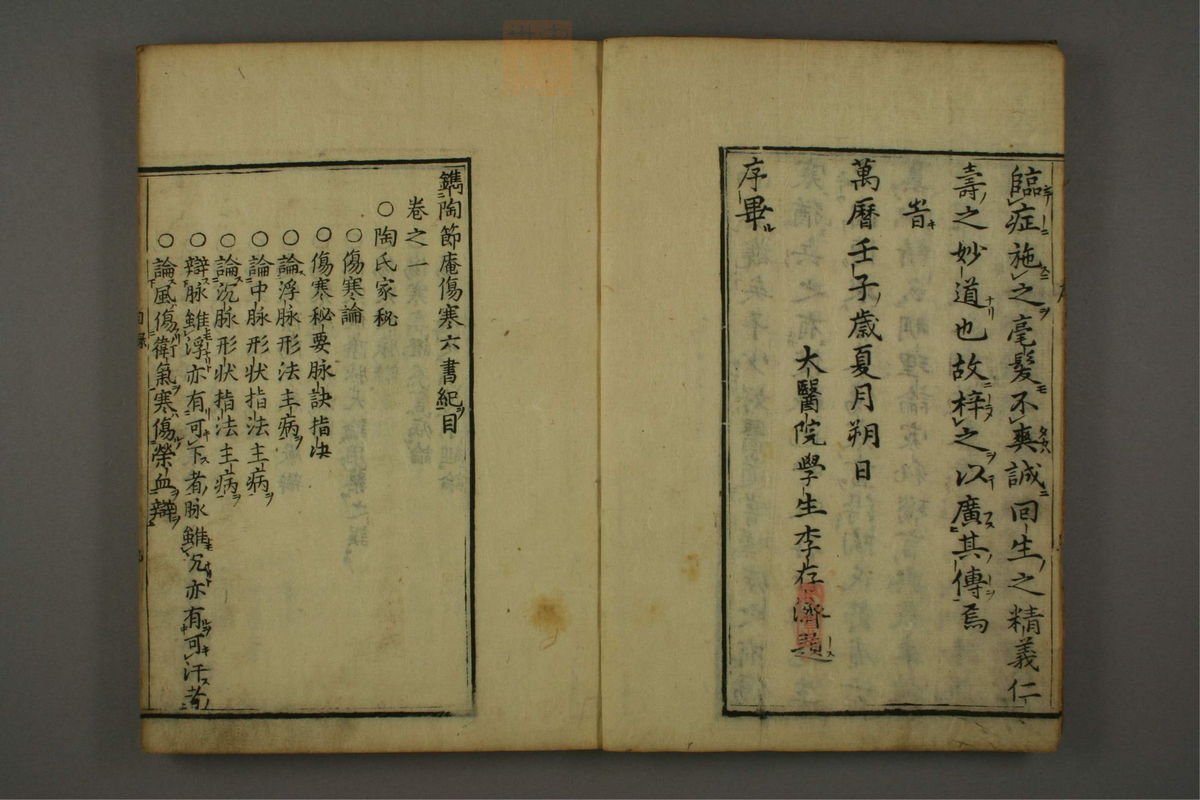 臨症施之毫髮不爽誠回生之精義仁
壽之妙道也故梓之以廣其傳焉
旹
萬曆壬子歲夏月朔日
太醫院學生李存濟題
序畢
鐫陶節庵傷寒六書紀目
卷之一
○陶氏家秘
○傷寒論
○傷寒秘要脉訣指决
○論浮脉形法主病
○論中脉形状指法主病
○論沉脉形状指法主病
○辯脉雖浮亦有可下者脉雖沉亦有可汗者
○論風傷衛氣寒傷榮血辯